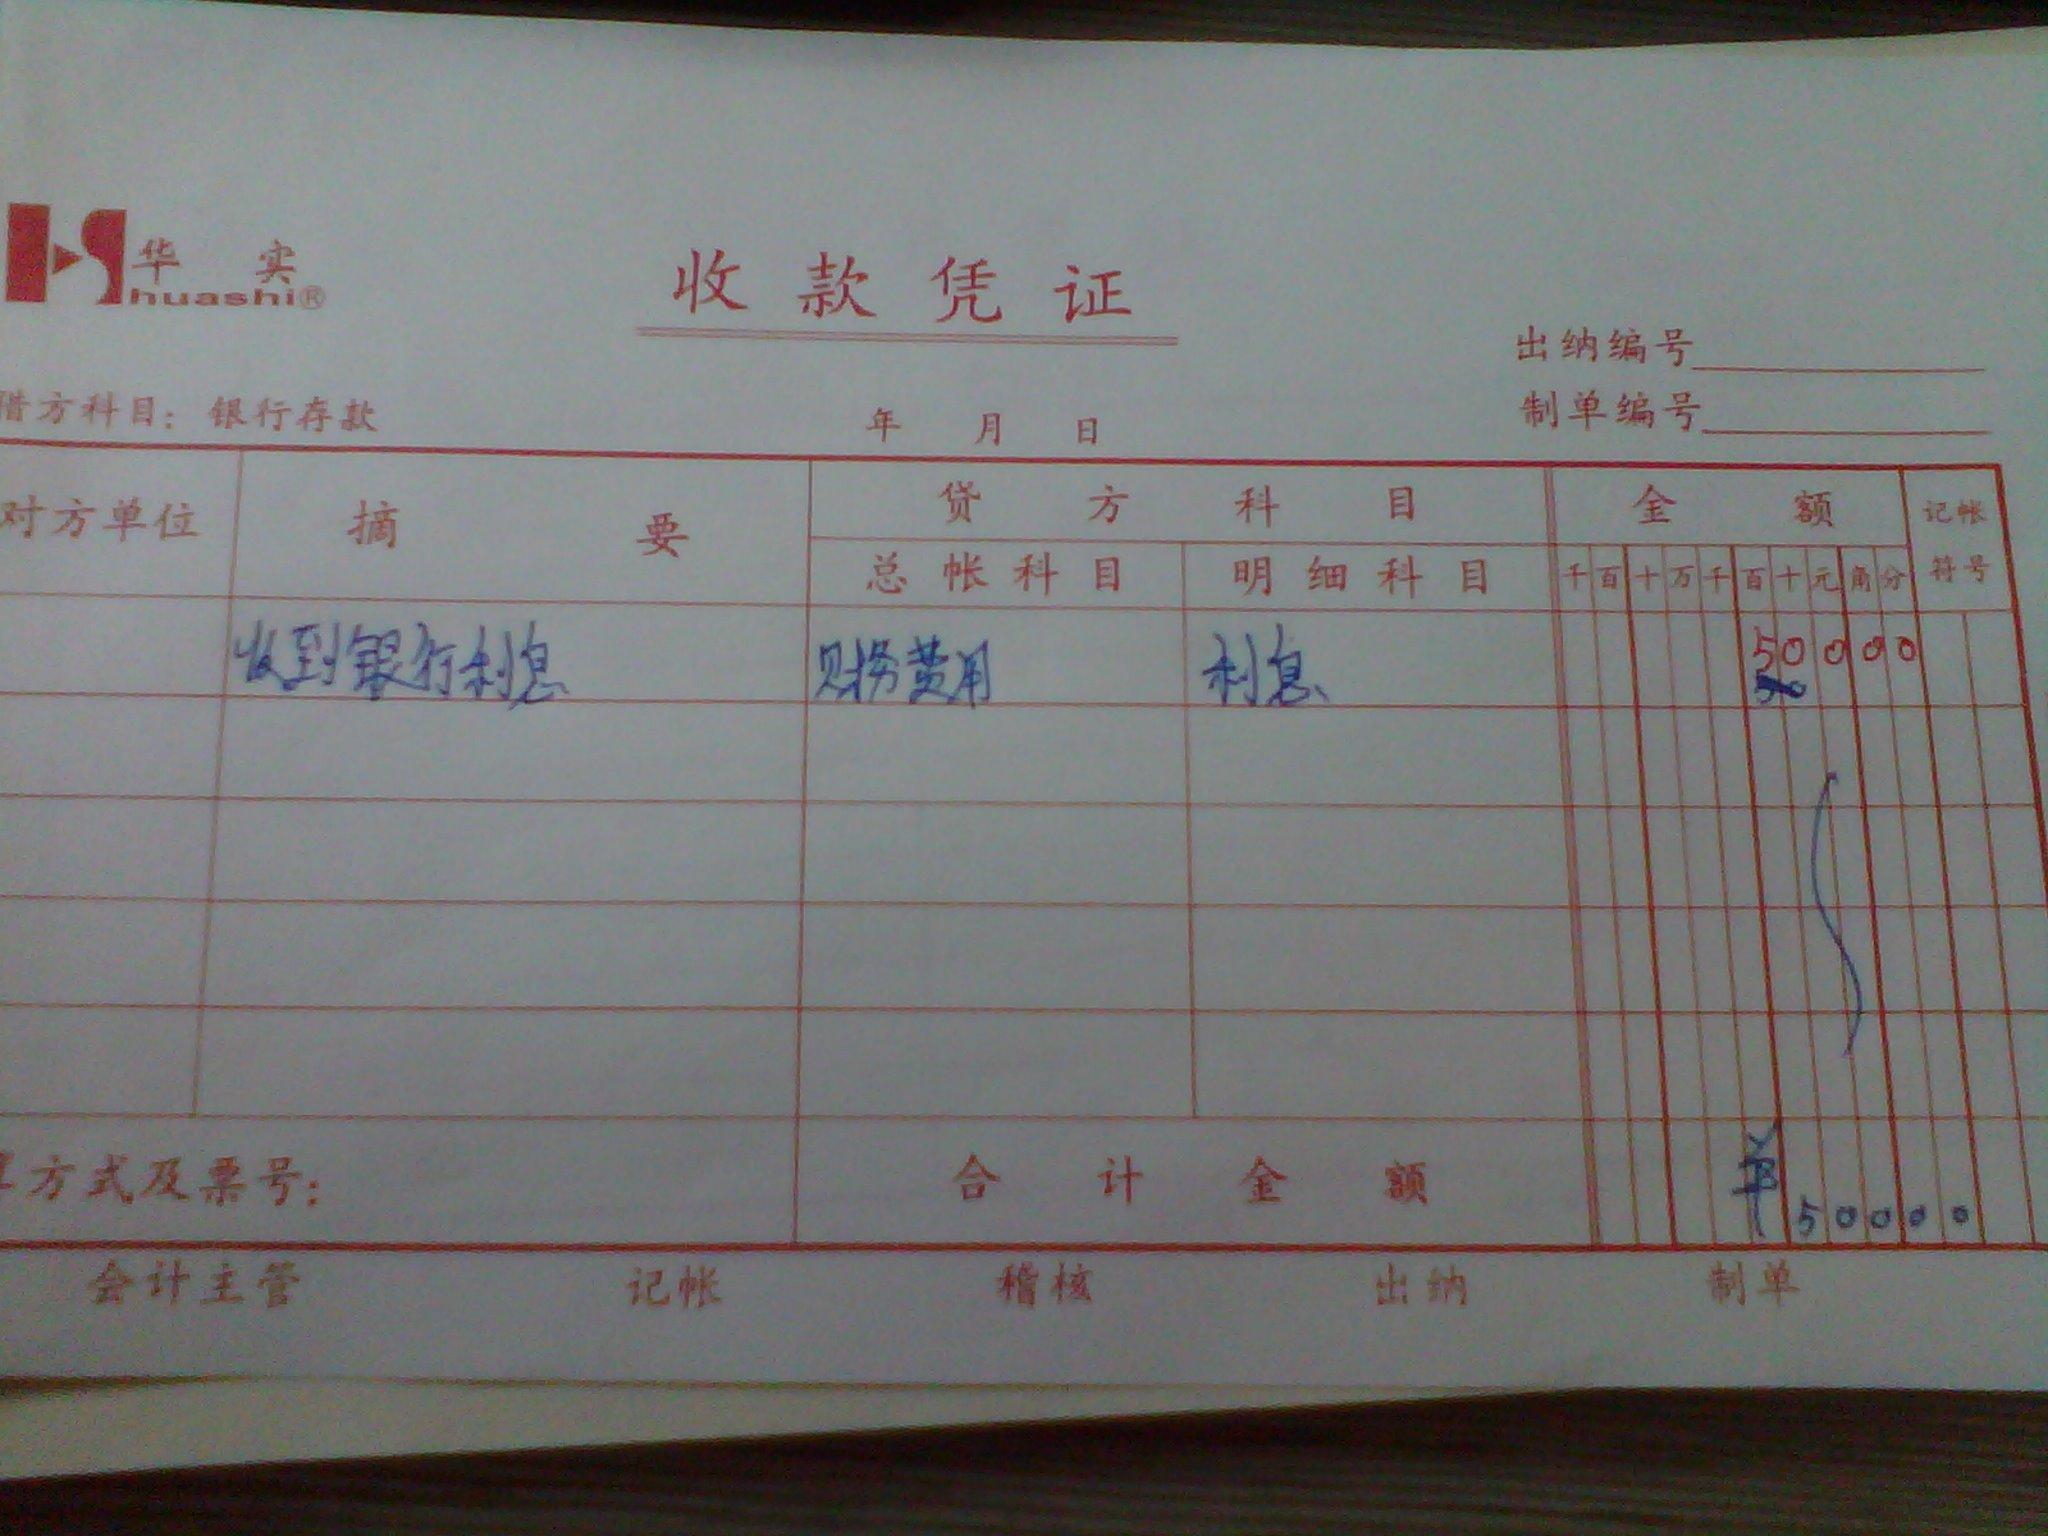 华实
huashi®
收款凭证
出纳编号
制单编号
借方科目：银行存款 年 月 日
对方单位 摘要 贷方科目 金额 记帐符号
总帐科目 明细科目 千百十万千百十元角分
收到银行利息 财务费用 利息 50000
50
方式及票号： 合计金额 ¥50000
会计主管 记帐 稽核 出纳 制单